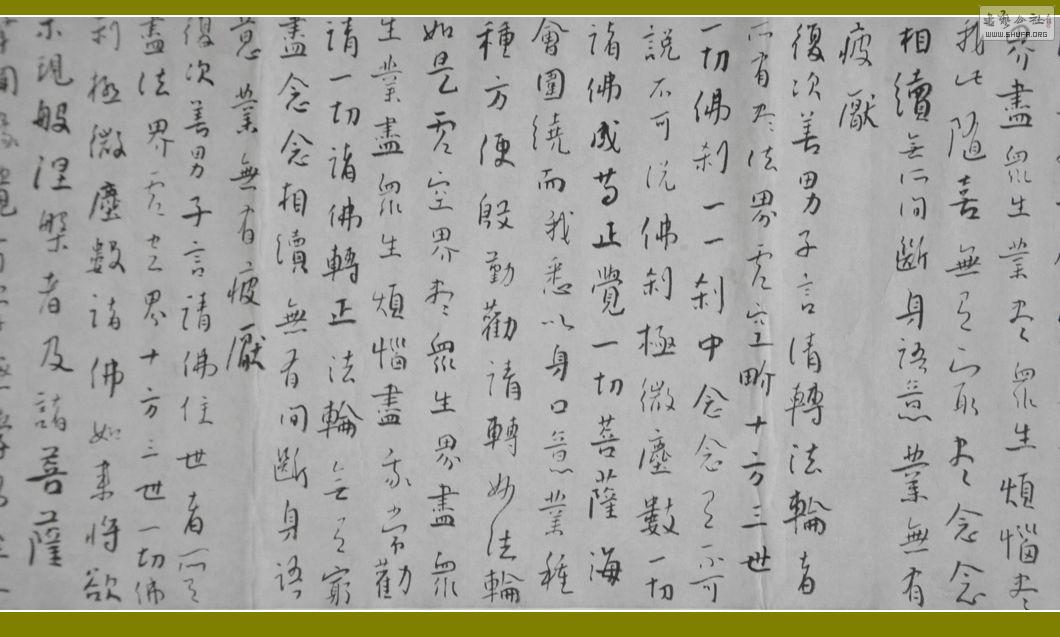 界盡眾生業盡眾生煩惱盡
我此隨喜無有窮盡念念
相續無有間斷身語意業無有
疲厭
復次善男子言請轉法輪者
所有盡法界虛空界十方三世
一切佛剎一一剎中念念有不可
說不可說佛剎極微塵數一切
諸佛成等正覺一切菩薩海
會圍繞而我悉以身口意業種
種方便殷勤勸請轉妙法輪
如是虛空界盡眾生界盡眾
生業盡眾生煩惱盡我常勸
請一切諸佛轉正法輪無有窮
盡念念相續無有間斷身語
意業無有疲厭
復次善男子言請佛住世者所有
盡法界虛空界十方三世一切佛
剎極微塵數諸佛如來將欲
示現般涅槃者及諸菩薩
書藝公社
WWW.SHUFA.ORG